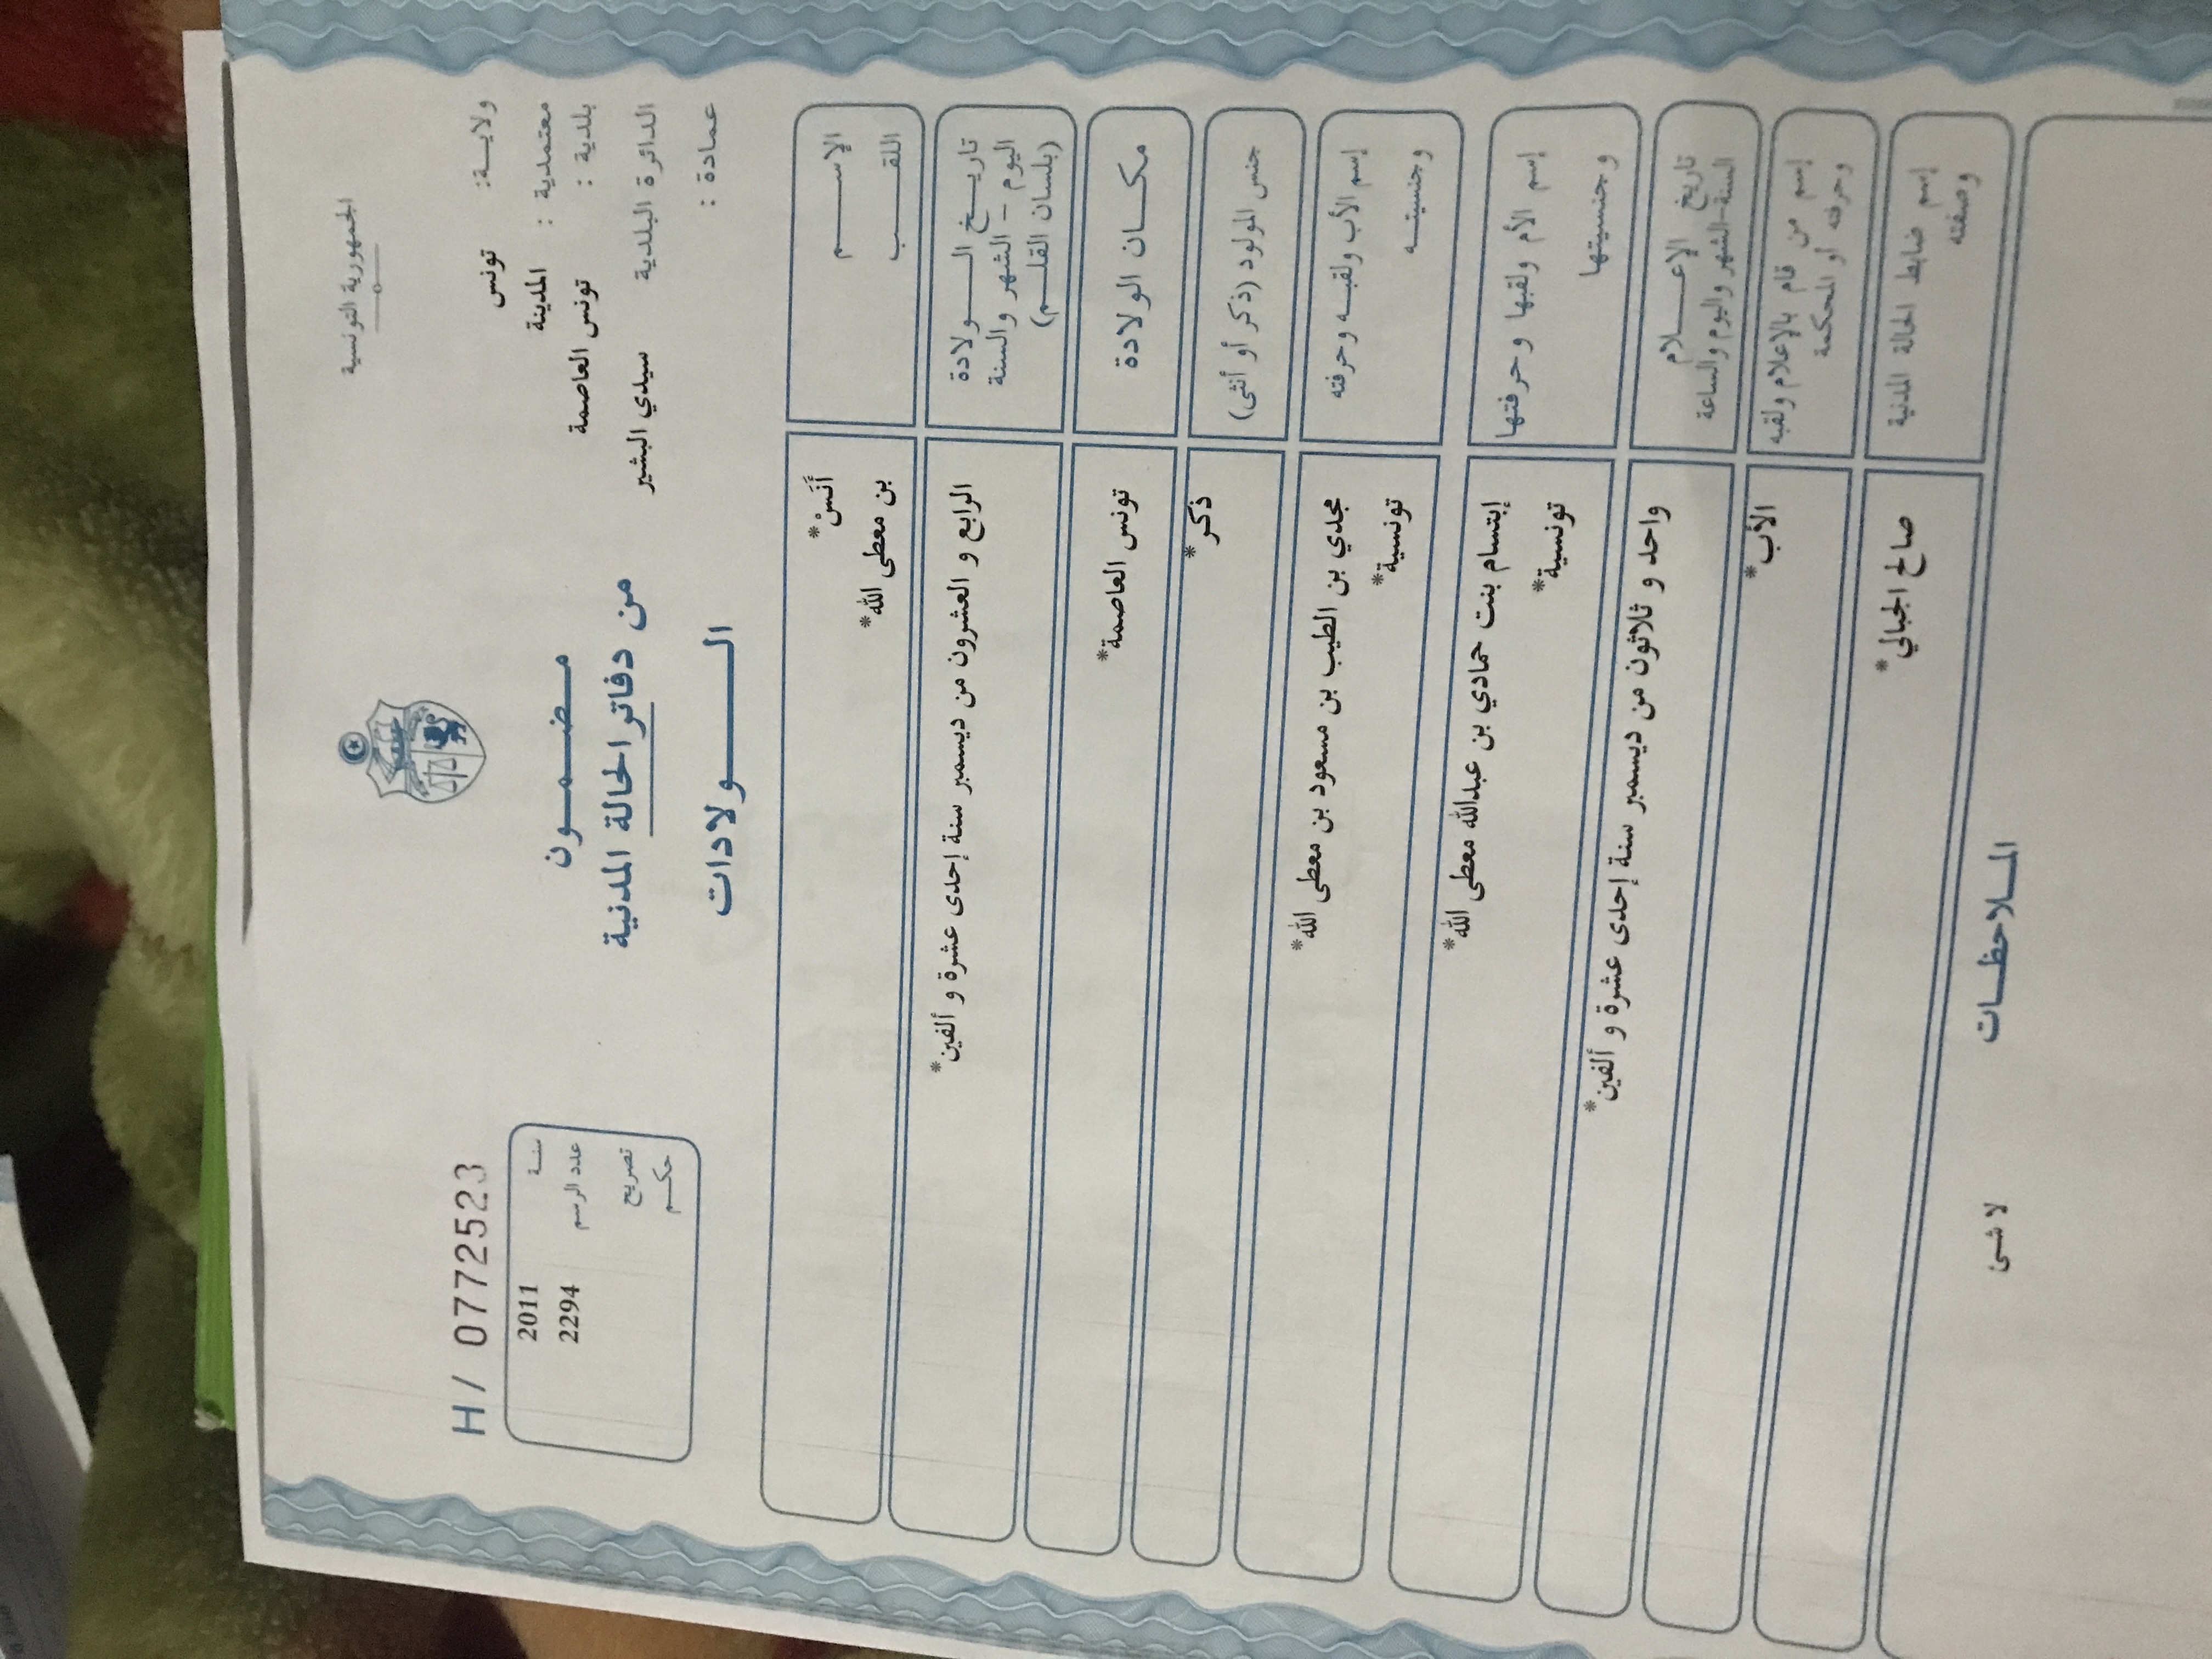 الجمهورية التونسية
ولايـة: تونس
معتمدية : المدينة
بلدية : تونس العاصمة
الدائرة البلدية سيدي البشير
عمادة :
H/ 0772523
سنـة 2011
عدد الرسم 2294
تصريح
حكـم
مـضـمـون
من دفاتر الحالة المدنية
الـولادات
الإسـم أَنَسْ*
اللقـب بن معطى الله*
تاريـخ الـولادة
اليوم - الشهر والسنة
(بلسان القلـم)
الرابع و العشرون من ديسمبر سنة إحدى عشرة و ألفين*
مكـان الولادة تونس العاصمة*
جنس المولود (ذكر أو أنثى) ذكر*
إسم الأب ولقبـه وحرفته مجدي بن الطيب بن مسعود بن معطى الله*
وجنسيتـه تونسية*
إسم الأم ولقبها وحرفتها إبتسام بنت حمادي بن عبدالله معطى الله*
وجنسيتها تونسية*
تاريخ الإعـلام
السنة-الشهر واليوم والساعة
واحد و ثلاثون من ديسمبر سنة إحدى عشرة و ألفين*
إسم من قام بالإعلام ولقبه
وحرفته أو المحكمة
الأب*
إسم ضابط الحالة المدنية
وصفته
صالح الجبالي*
المـلاحظـات
لا شئ